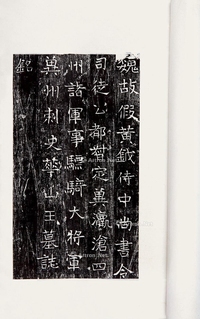 魏故假黄鉞侍中尚書令
司徒公都督定冀瀛滄四
州諸軍事驃騎大將軍
冀州刺史華山王墓誌
銘